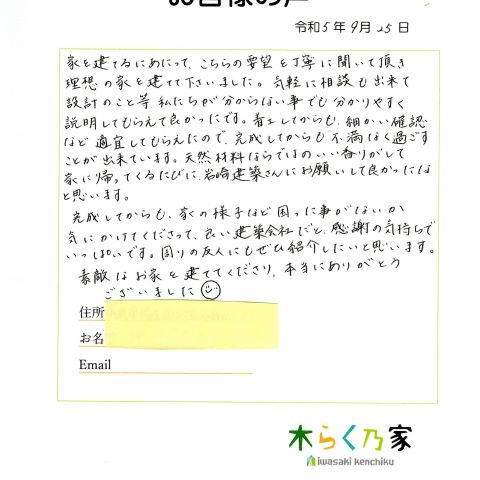 お客様の声
令和5年 9月 25日
家を建てるにあたって、こちらの要望を丁寧に聞いて頂き
理想の家を建てて下さいました。気軽に相談も出来て
設計のこと等 私たちが分からない事でも分かりやすく
説明してもらえて良かったです。着工してからも、細かい確認
など適宜してもらえたので、完成してからも不満なく過ごす
ことが出来ています。天然材料ならではのいい香りがして
家に帰ってくるたびに、岩崎建築さんにお願いして良かったな
と思います。
完成してからも、家の様子など困った事がないか
気にかけてくださって、良い建築会社だと、感謝の気持ちで
いっぱいです。周りの友人にもぜひ紹介したいと思います。
素敵なお家を建ててくださり、本当にありがとう
ございました
住所
お名
Email
木らく乃家
iwasaki kenchiku